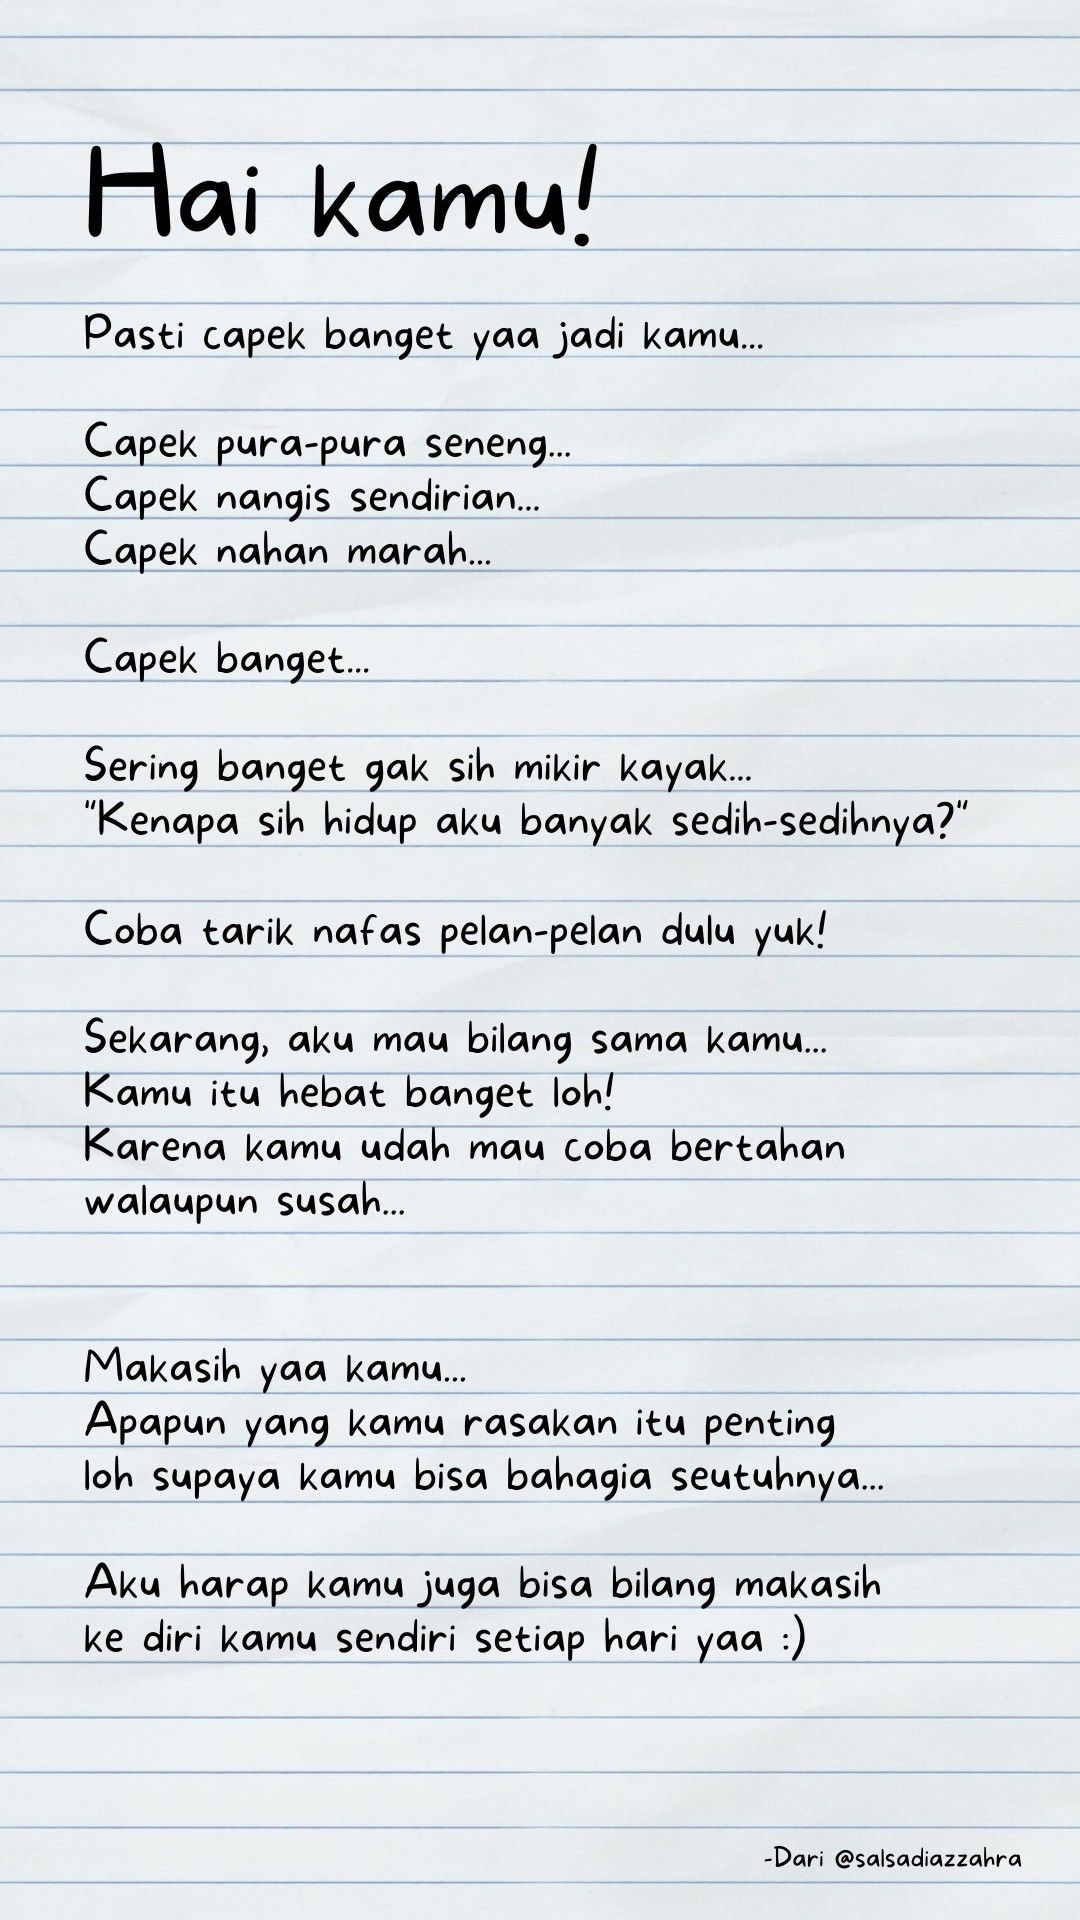 Hai kamu!
Pasti capek banget yaa jadi kamu...
Capek pura-pura seneng...
Capek nangis sendirian...
Capek nahan marah...
Capek banget...
Sering banget gak sih mikir kayak...
"Kenapa sih hidup aku banyak sedih-sedihnya?"
Coba tarik nafas pelan-pelan dulu yuk!
Sekarang, aku mau bilang sama kamu...
Kamu itu hebat banget loh!
Karena kamu udah mau coba bertahan
walaupun susah...
Makasih yaa kamu...
Apapun yang kamu rasakan itu penting
loh supaya kamu bisa bahagia seutuhnya...
Aku harap kamu juga bisa bilang makasih
ke diri kamu sendiri setiap hari yaa :)
-Dari @salsadiazzahra